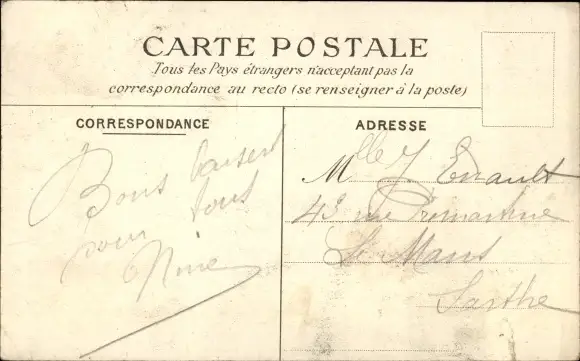 CARTE POSTALE
Tous les Pays étrangers n'acceptant pas la
correspondance au recto (se renseigner à la poste)
CORRESPONDANCE
ADRESSE
Bons baisers
pour tous
Nine
Mlle Y Enault
43 rue Prémartine
Le Mans
Sarthe